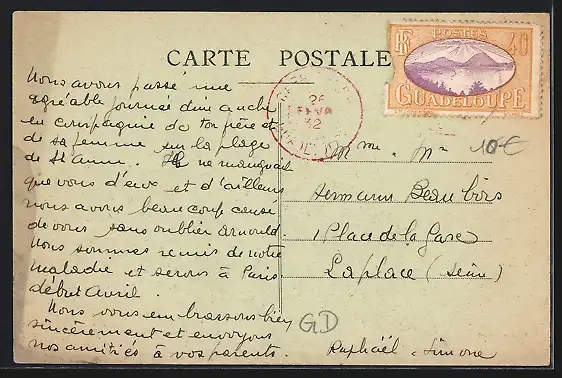 CARTE POSTALE
RF POSTES 40
GUADELOUPE
26
FEVR
32
Nous avons passé une
agréable journée dimanche
en compagnie de ton père et
de sa femme sur la plage
de Ste Anne. Il ne manquait
que vous deux et d'ailleurs
nous avons beaucoup causé
de vous sans oublier Arnould.
Nous sommes remis de notre
maladie et serons à Paris
début Avril.
Nous vous embrassons bien
sincèrement et envoyons
nos amitiés à vos parents.
Raphaël - Simone
Mme. Mr
10€
Germann Beaubois
1 Place de la Gare
Laplace (Seine)
GD